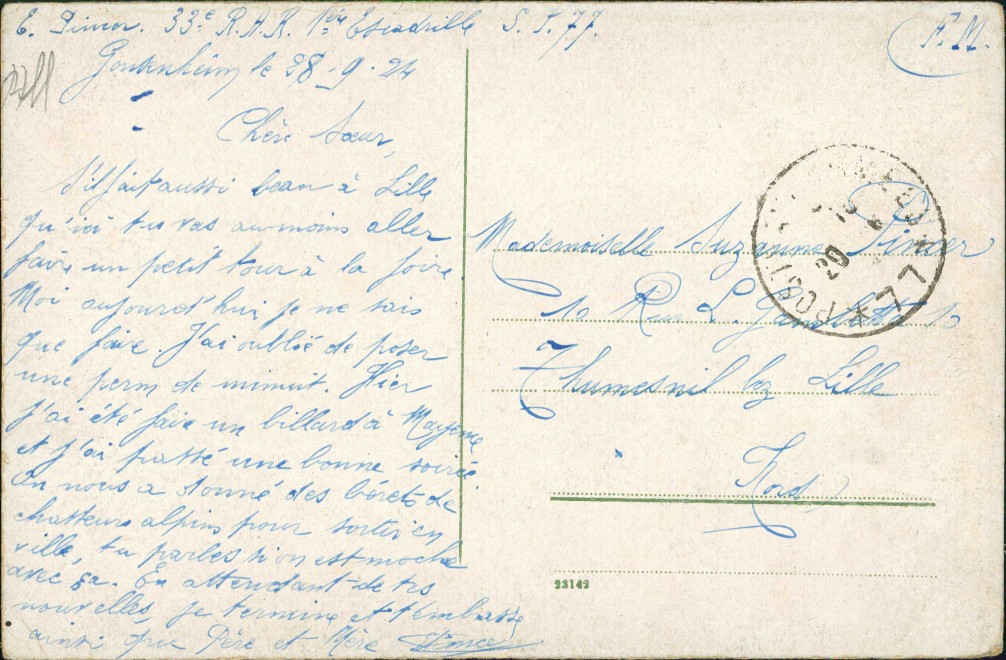 E. Pincer. 33e R.A.R. 1ère Escadrille S.P.77.
F.M.
Gonsenheim le 28-9-24
Chère Sœur,
S'il fait aussi beau à Lille
qu'ici tu vas au moins aller
faire un petit tour à la foire
Moi aujourd'hui je ne sais
que faire. J'ai oublié de poser
une perm de minuit. Hier
j'ai été faire un billard à Mayence
et j'ai passé une bonne soirée.
On nous a donné des bérets de
chasseurs alpins pour sortir en
ville, tu parles si on est moche
avec ça. En attendant de tes
nouvelles, je termine et t'embrasse
ainsi que Père et Mère
Mademoiselle Suzanne Pincer
10 Rue L. 10
Thumesnil lez Lille
Nord
POSTE 77
20
23149